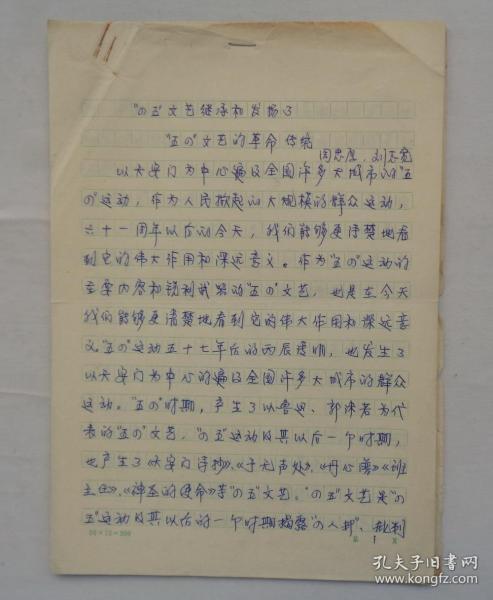 “四五”文艺继承和发扬了
“五四”文艺的革命传统
周忠厚、刘志宽
以天安门为中心遍及全国许多大城市的“五
四”运动，作为人民掀起的大规模的群众运动，
六十一周年以后的今天，我们能够更清楚地看
到它的伟大作用和深远意义。作为“五四”运动的
主要内容和锐利武器的“五四”文艺，也是在今天
我们能够更清楚地看到它的伟大作用和深远意
义。“五四”运动五十七年后的丙辰清明，也发生了
以天安门为中心的遍及全国许多大城市的群众
运动。“五四”时期，产生了以鲁迅、郭沫若为代
表的“五四”文艺，“四五”运动及其以后一个时期，
也产生了《天安门诗抄》、《于无声处》、《丹心谱》《班
主任》、《神圣的使命》等“四五”文艺。“四五”文艺是“四
五”运动及其以后的一个时期揭露“四人邦”、批判
20×15=300
第 1 页
孔夫子旧书网
www.kongfz.com